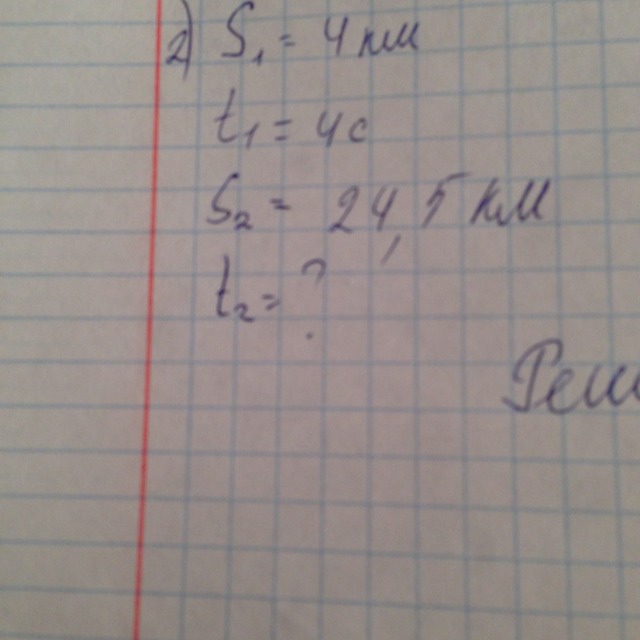 2) S₁ = 4 км
t₁ = 4с
S₂ = 24,5 км
t₂ = ?
Реш